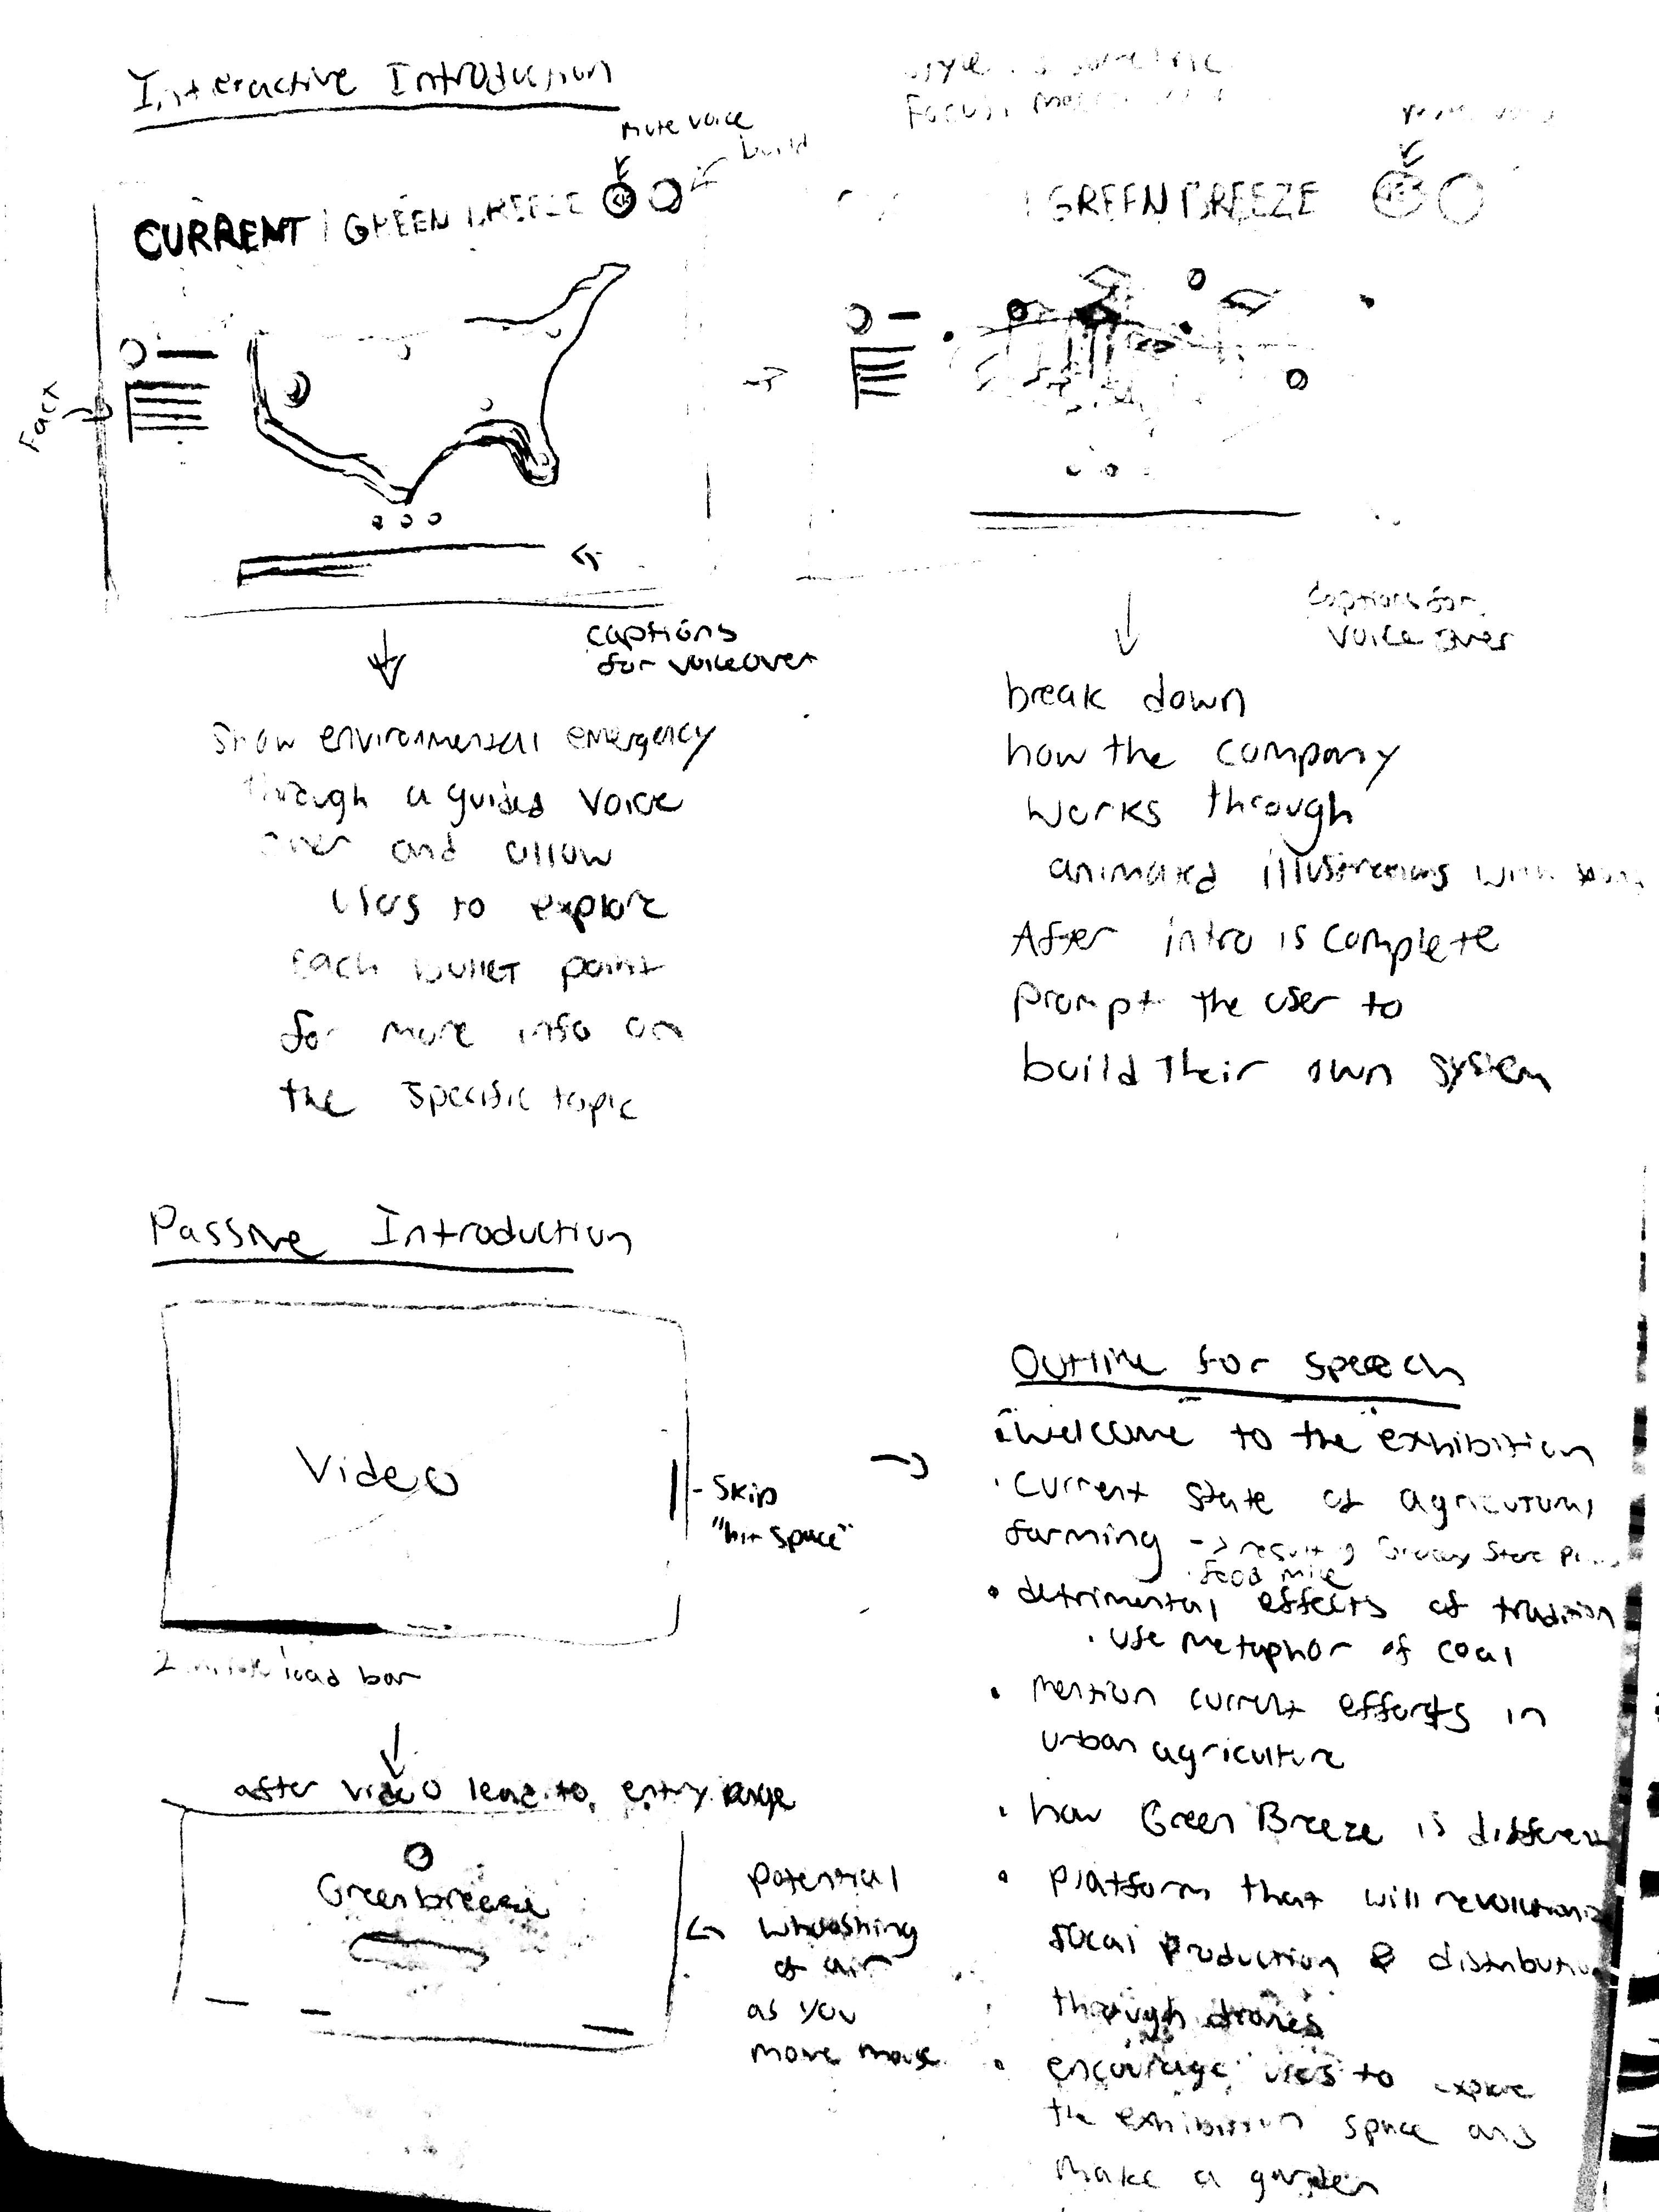 Interactive Introduction
Mute voice
build
CURRENT | GREEN BREEZE
Fact
captions
for voiceover
Show environmental emergency
through a guided voice
over and allow
users to explore
each bullet point
for more info on
the specific topic
Focus:
| GREEN BREEZE
captions for
voice over
break down
how the company
works through
animated illustrations with
After intro is complete
prompt the user to
build their own system
Passive Introduction
Video
- Skip
"hit space"
2 minute load bar
after video lead to entry page
Greenbreeze
potential
whooshing
of air
as you
move mouse
Outline for speech
• Welcome to the exhibition
• Current state of agricultural
farming -> resulting Grocery Store
food mile
• detrimental effects of tradition
• use metaphor of coal
• mention current efforts in
urban agriculture
• how Green Breeze is different
• platform that will revolutionize
local production & distribution
through drones
• encourage users to explore
the exhibition space and
make a garden